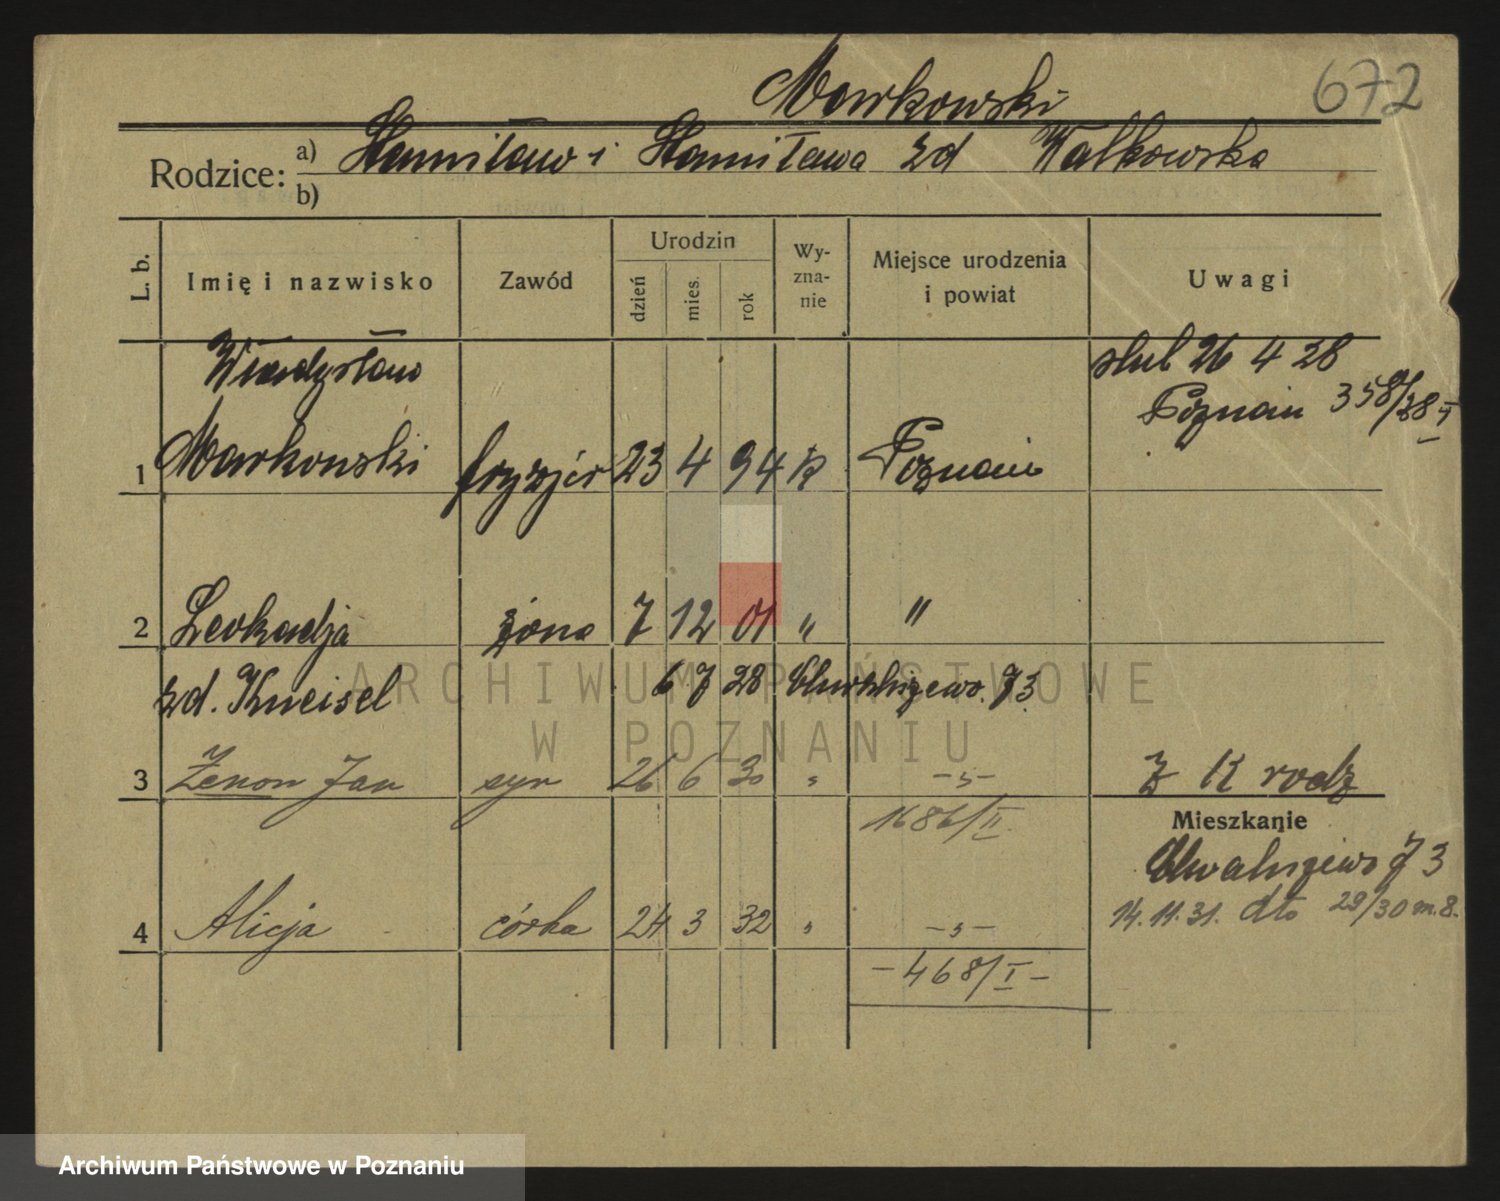 Markowski 672
Rodzice: a) Stanisław i Stanisława zd Walkowska
b)
L. b. Imię i nazwisko Zawód Urodzin dzień mies. rok Wy-zna-nie Miejsce urodzenia i powiat Uwagi
Władysław ślub 26 4 28
Poznań 358/28 I
1 Markowski fryzjer 23 4 94 k Poznań
2 Leokadja żona 7 12 01 " "
zd. Kneisel 6 7 28 Chwaliszewo 73
3 Zenon Jan syn 26 6 30 " -"- Z K rodz
1686/II
Mieszkanie
Chwaliszewo 73
14.11.31. dto 29/30 m.8.
4 Alicja córka 24 3 32 " -"-
-468/I-
ARCHIWUM PAŃSTWOWE
W POZNANIU
Archiwum Państwowe w Poznaniu